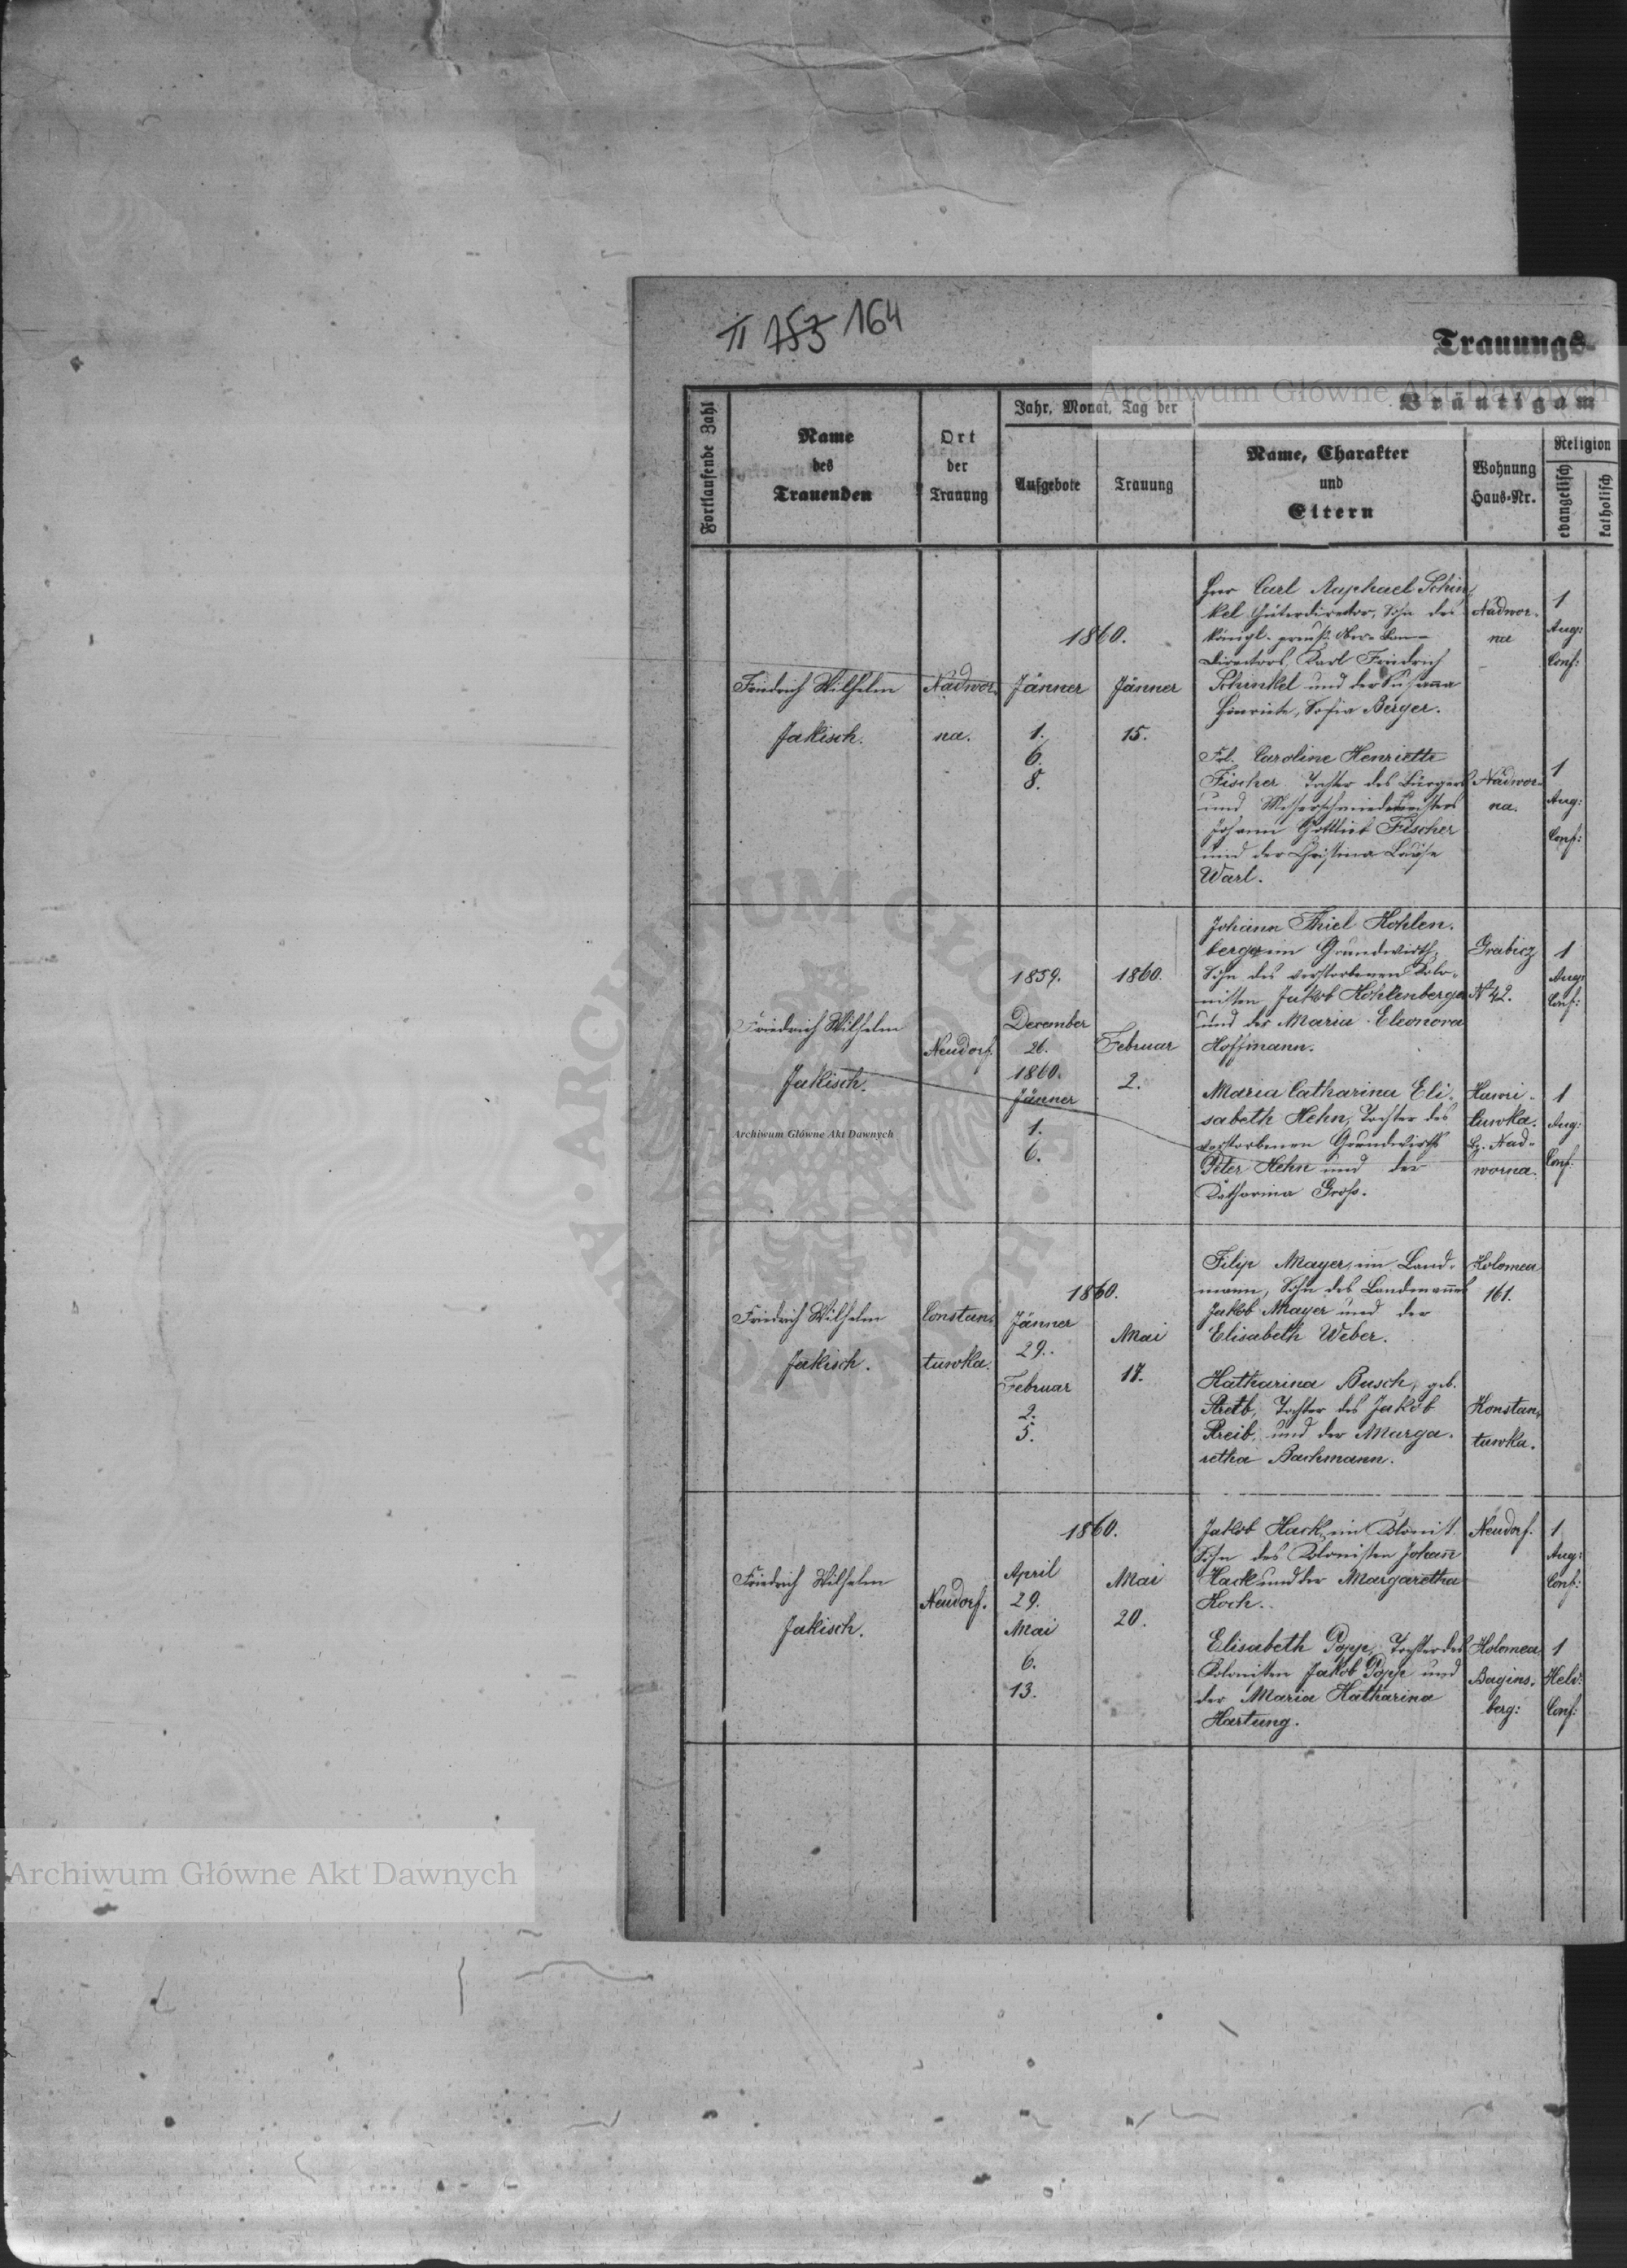 II 753 164
Trauungs-
Archiwum Główne Akt Dawnych
Fortlaufende Zahl
Name
des
Trauenden
Ort
der
Trauung
Jahr, Monat, Tag der
Aufgebote
Trauung
Bräutigam
Name, Charakter
und
Eltern
Wohnung
Haus-Nr.
Religion
evangelisch
katholisch
Friedrich Wilhelm
Jakisch.
Nadwor-
na.
1860.
Jänner
1.
6.
8.
Jänner
15.
Herr Carl Raphael Schin-
kel Güterdirector, Sohn des
königl. preuß. Ober-
Directors Karl Friedrich
Schinkel und der Susanna
Henriete, Sofia Berger.
Nadwor-
na
1
Aug:
Conf:
Frl. Caroline Henriette
Fischer Tochter des Bürgers
und Messerschmiedmeisters
Johann Gottlieb Fischer
und der Christina Louise
Warl.
Nadwor-
na.
1
Aug:
Conf:
Friedrich Wilhelm
Jakisch.
Neudorf.
1859.
December
26.
1860.
Jänner
1.
6.
1860.
Februar
2.
Johann Thiel Kohlen-
berger ein Grundwirth,
Sohn des verstorbenen Kolo-
nisten Jakob Kohlenberger
und der Maria Eleonora
Hoffmann.
Grabicz
N 42.
1
Aug:
Conf:
Maria Catharina Eli-
sabeth Hehn, Tochter des
verstorbenen Grundwirths
Peter Hehn und der
Katharina Groß.
Hawri-
luwka.
bz. Nad-
worna.
1
Aug:
Conf:
Archiwum Główne Akt Dawnych
Friedrich Wilhelm
Jakisch.
Constan-
tuwka.
1860.
Jänner
29.
Februar
2.
5.
Mai
17.
Filip Mayer, ein Land-
mann, Sohn des Landmanns
Jakob Mayer und der
Elisabeth Weber.
Kolomea
161.
Katharina Busch, geb.
Tochter des Jakob
und der Marga-
retha Bachmann.
Konstan-
tuwka.
Friedrich Wilhelm
Jakisch.
Neudorf.
1860.
April
29.
Mai
6.
13.
Mai
20.
Jakob Hack, ein Kolonist.
Sohn des Kolonisten Johann
Hack und der Margaretha
Koch.
Neudorf.
1
Aug:
Conf:
Elisabeth Popp, Tochter des
Kolonisten Jakob Popp und
der Maria Katharina
Hartung.
Kolomea
Bagins-
berg:
1
Helv:
Conf:
Archiwum Główne Akt Dawnych
ARCHIWUM GŁÓWNE AKT DAWNYCH